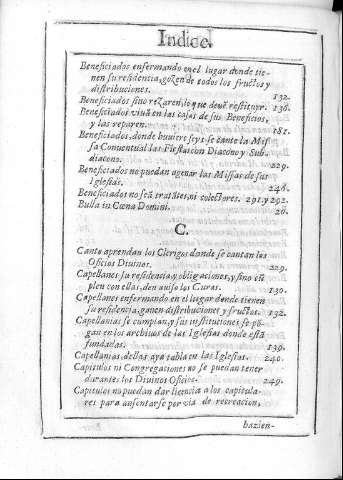 Indice.
Beneficiados enfermando en el lugar donde tie-
nen su residencia, gozen de todos los fructos y
distribuciones. 132.
Beneficiados sino rezaren, lo que deuē restituyr. 136.
Beneficiados viuā en las casas de sus Beneficios,
y las reparen. 181.
Beneficiados, donde huuiere seys se cante la Mis-
sa Conuentual las Fiestas con Diacono y Sub-
diacono. 229.
Beneficiados no puedan agenar las Missas de sus
Iglesias. 248.
Beneficiados no seā tratātes, ni colectores. 291. y 292.
Bulla in Cœna Domini. 26.
C.
Canto aprendan los Clerigos donde se cantan los
Oficios Diuinos. 229.
Capellanes su residencia y obligaciones, y sino cū
plen con ellas, den auiso los Curas. 130.
Capellanes enfermando en el lugar donde tienen
su residencia, ganen distribuciones y fructos. 132.
Capellanias se cumplan, y sus instituciones se pō-
gan en los archiuos de las Iglesias donde estā
fundadas. 139.
Capellanias, dellas aya tabla en las Iglesias. 240.
Capitulos ni Congregaciones no se puedan tener
durante los Diuinos Oficios. 249.
Capitulos no puedan dar licencia a los capitula-
res para ausentarse por via de recreacion,
hazien-